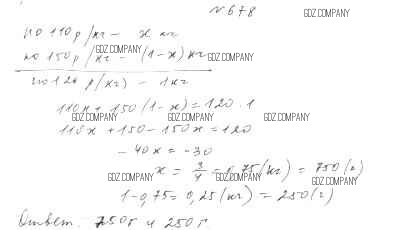 № 678
GDZ.COMPANY
по 110 р/кг – x кг
GDZ.COMPANY
по 150 р/кг – (1-x) кг
GDZ.COMPANY
по 120 р/кг) – 1 кг
110x + 150(1-x) = 120 · 1
GDZ.COMPANY GDZ.COMPANY GDZ.COMPANY
110x + 150 - 150x = 120
- 40x = -30
x = 3/4 = 0,75 (кг) = 750 (г)
GDZ.COMPANY GDZ.COMPANY GDZ.COMPANY
1-0,75 = 0,25 (кг) = 250 (г)
Ответ: 750 г и 250 г.